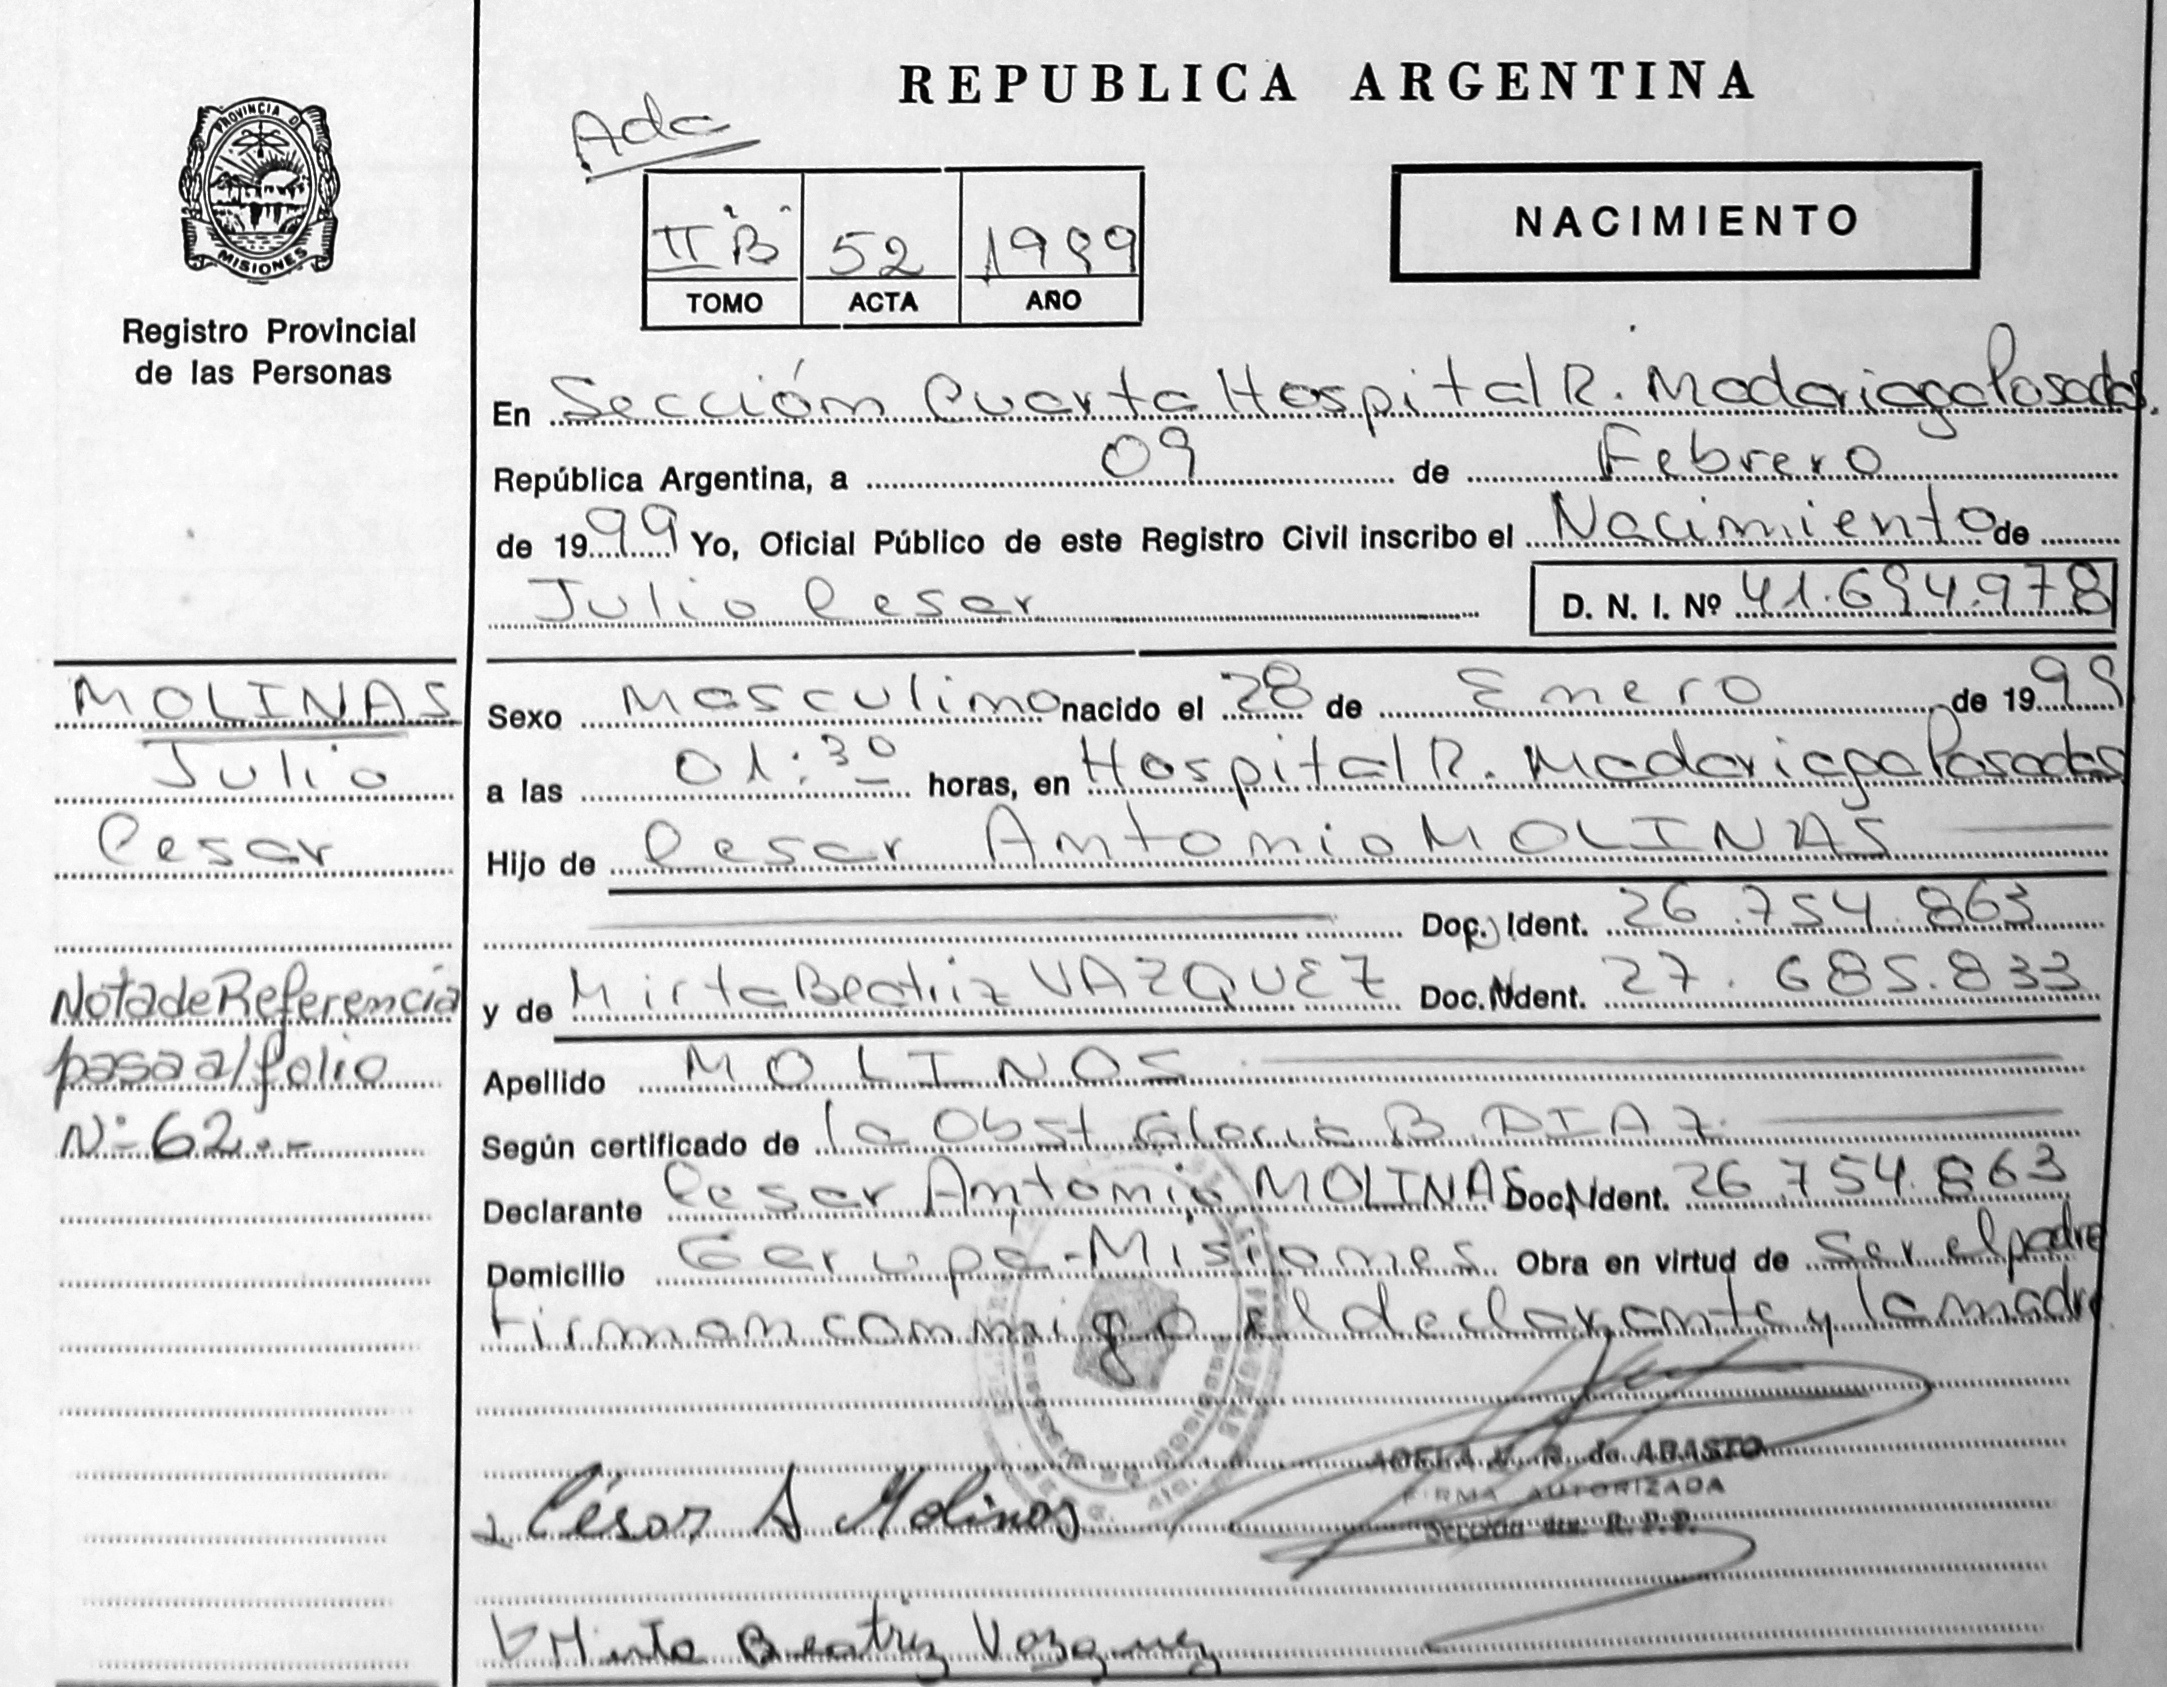 REPUBLICA ARGENTINA
PROVINCIA D
MISIONES
Registro Provincial
de las Personas
Ada
II B 52 1999
TOMO ACTA AÑO
NACIMIENTO
En Sección Cuarta Hospital R. Madariaga Posadas.
República Argentina, a 09 de Febrero
de 1999 Yo, Oficial Público de este Registro Civil inscribo el Nacimiento de
Julio Cesar D. N. I. Nº 41.694.978
MOLINAS
Julio
Cesar
Nota de Referencia
pasa al folio
Nº 62.-
Sexo Masculino nacido el 28 de Enero de 1999
a las 01:30 horas, en Hospital R. Madariaga Posadas
Hijo de Cesar Antonio MOLINAS
Doc. Ident. 26.754.863
y de Mirta Beatriz VAZQUEZ Doc. Ident. 27.685.833
Apellido MOLINAS
Según certificado de la Obst Gloria B. DIAZ
Declarante Cesar Antonio MOLINAS Doc. Ident. 26.754.863
Domicilio Garupá-Misiones Obra en virtud de Ser el padre
Firman conmigo el declarante y la madre
ADELA R. de ABASTO
FIRMA AUTORIZADA
Sección R. P. P.
César A Molinas
Mirta Beatriz Vazquez